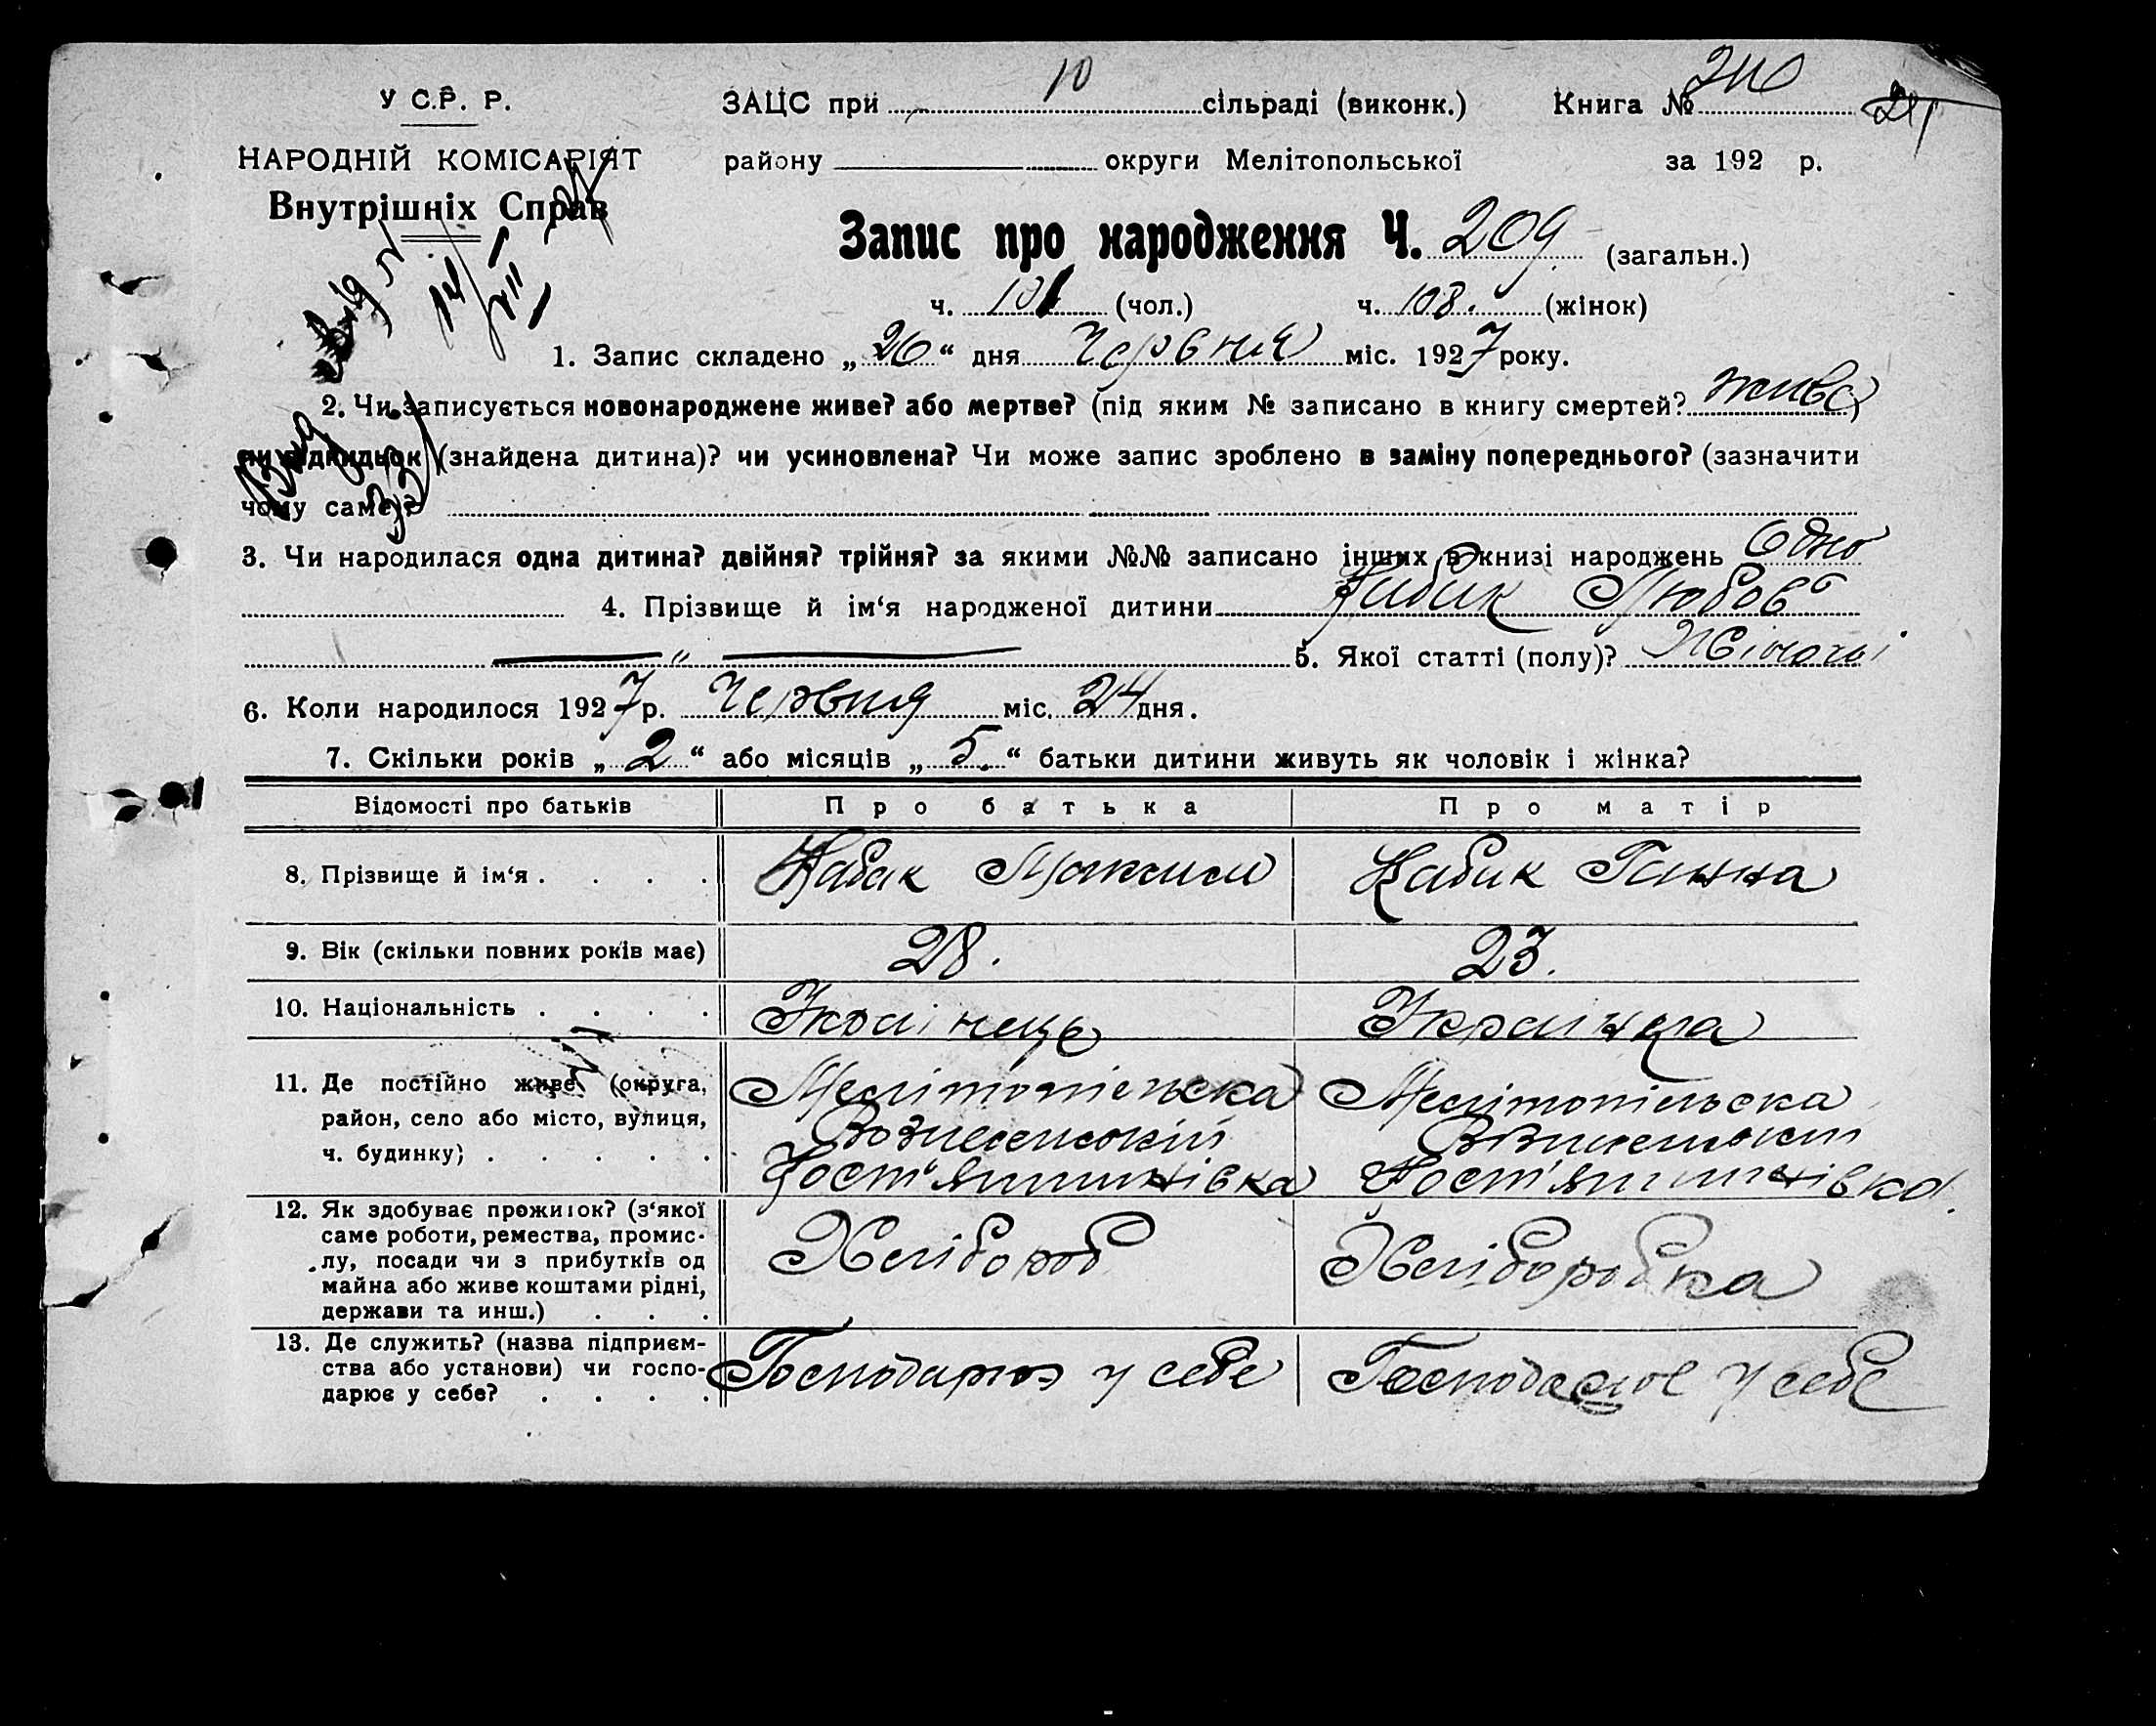 У С.Р. Р.
НАРОДНІЙ КОМІСАРІЯТ
Внутрішніх Справ
ЗАЦС при 10 сільраді (виконк.) Книга №
району округи Мелітопольської за 192 р.
Запис про народження Ч. 209 (загальн.)
ч. 101 (чол.) ч. 108. (жінок)
1. Запис складено „26“ дня Червня міс. 1927 року.
2. Чи записується новонароджене живе? або мертве? (під яким № записано в книгу смертей? живе)
чи підкидьок (знайдена дитина)? чи усиновлена? Чи може запис зроблено в заміну попереднього? (зазначити
чому саме)?
3. Чи народилася одна дитина? двійня? трійня? за якими №№ записано інших в книзі народжень Одно
4. Прізвище й ім‘я народженої дитини Кабак Любов
„ 5. Якої статті (полу)? Жіночої
6. Коли народилося 1927 р. Червня міс. 24 дня.
7. Скільки років „2“ або місяців „5.“ батьки дитини живуть як чоловік і жінка?
Відомості про батьків Про батька Про матір
8. Прізвище й ім‘я . . . . Кабак Максим Кабак Ганна
9. Вік (скільки повних років має) 28. 23.
10. Національність . . . . Україנець Українка
11. Де постійно живе (округа, Мелітопільська Мелітопільська
район, село або місто, вулиця, Вознесенский Вознесенский
ч. будинку) . . . . . Кост'янтинівка Кост'янтинівка.
12. Як здобуває прожиток? (з‘якої
саме роботи, ремества, промис-
лу, посади чи з прибутків од Хлібороб Хліборобка
майна або живе коштами рідні,
держави та инш.) . . .
13. Де служить? (назва підприєм-
ства або установи) чи госпо- Господарює у себе Господарює у себе
дарює у себе? . . . .